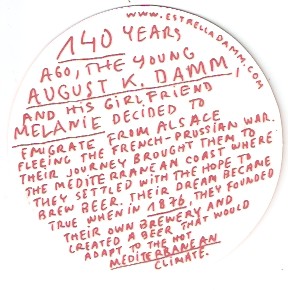 www.ESTRELLADAMM.com
140 YEARS
AGO, THE YOUNG
AUGUST K. DAMM,
AND HIS GIRLFRIEND
MELANIE DECIDED TO
EMIGRATE FROM ALSACE
FLEEING THE FRENCH-PRUSSIAN WAR.
THEIR JOURNEY BROUGHT THEM TO
THE MEDITERRANEAN COAST WHERE
THEY SETTLED WITH THE HOPE TO
BREW BEER. THEIR DREAM BECAME
TRUE WHEN IN 1876, THEY FOUNDED
THEIR OWN BREWERY AND
CREATED A BEER THAT WOULD
ADAPT TO THE HOT
MEDITERRANEAN
CLIMATE.